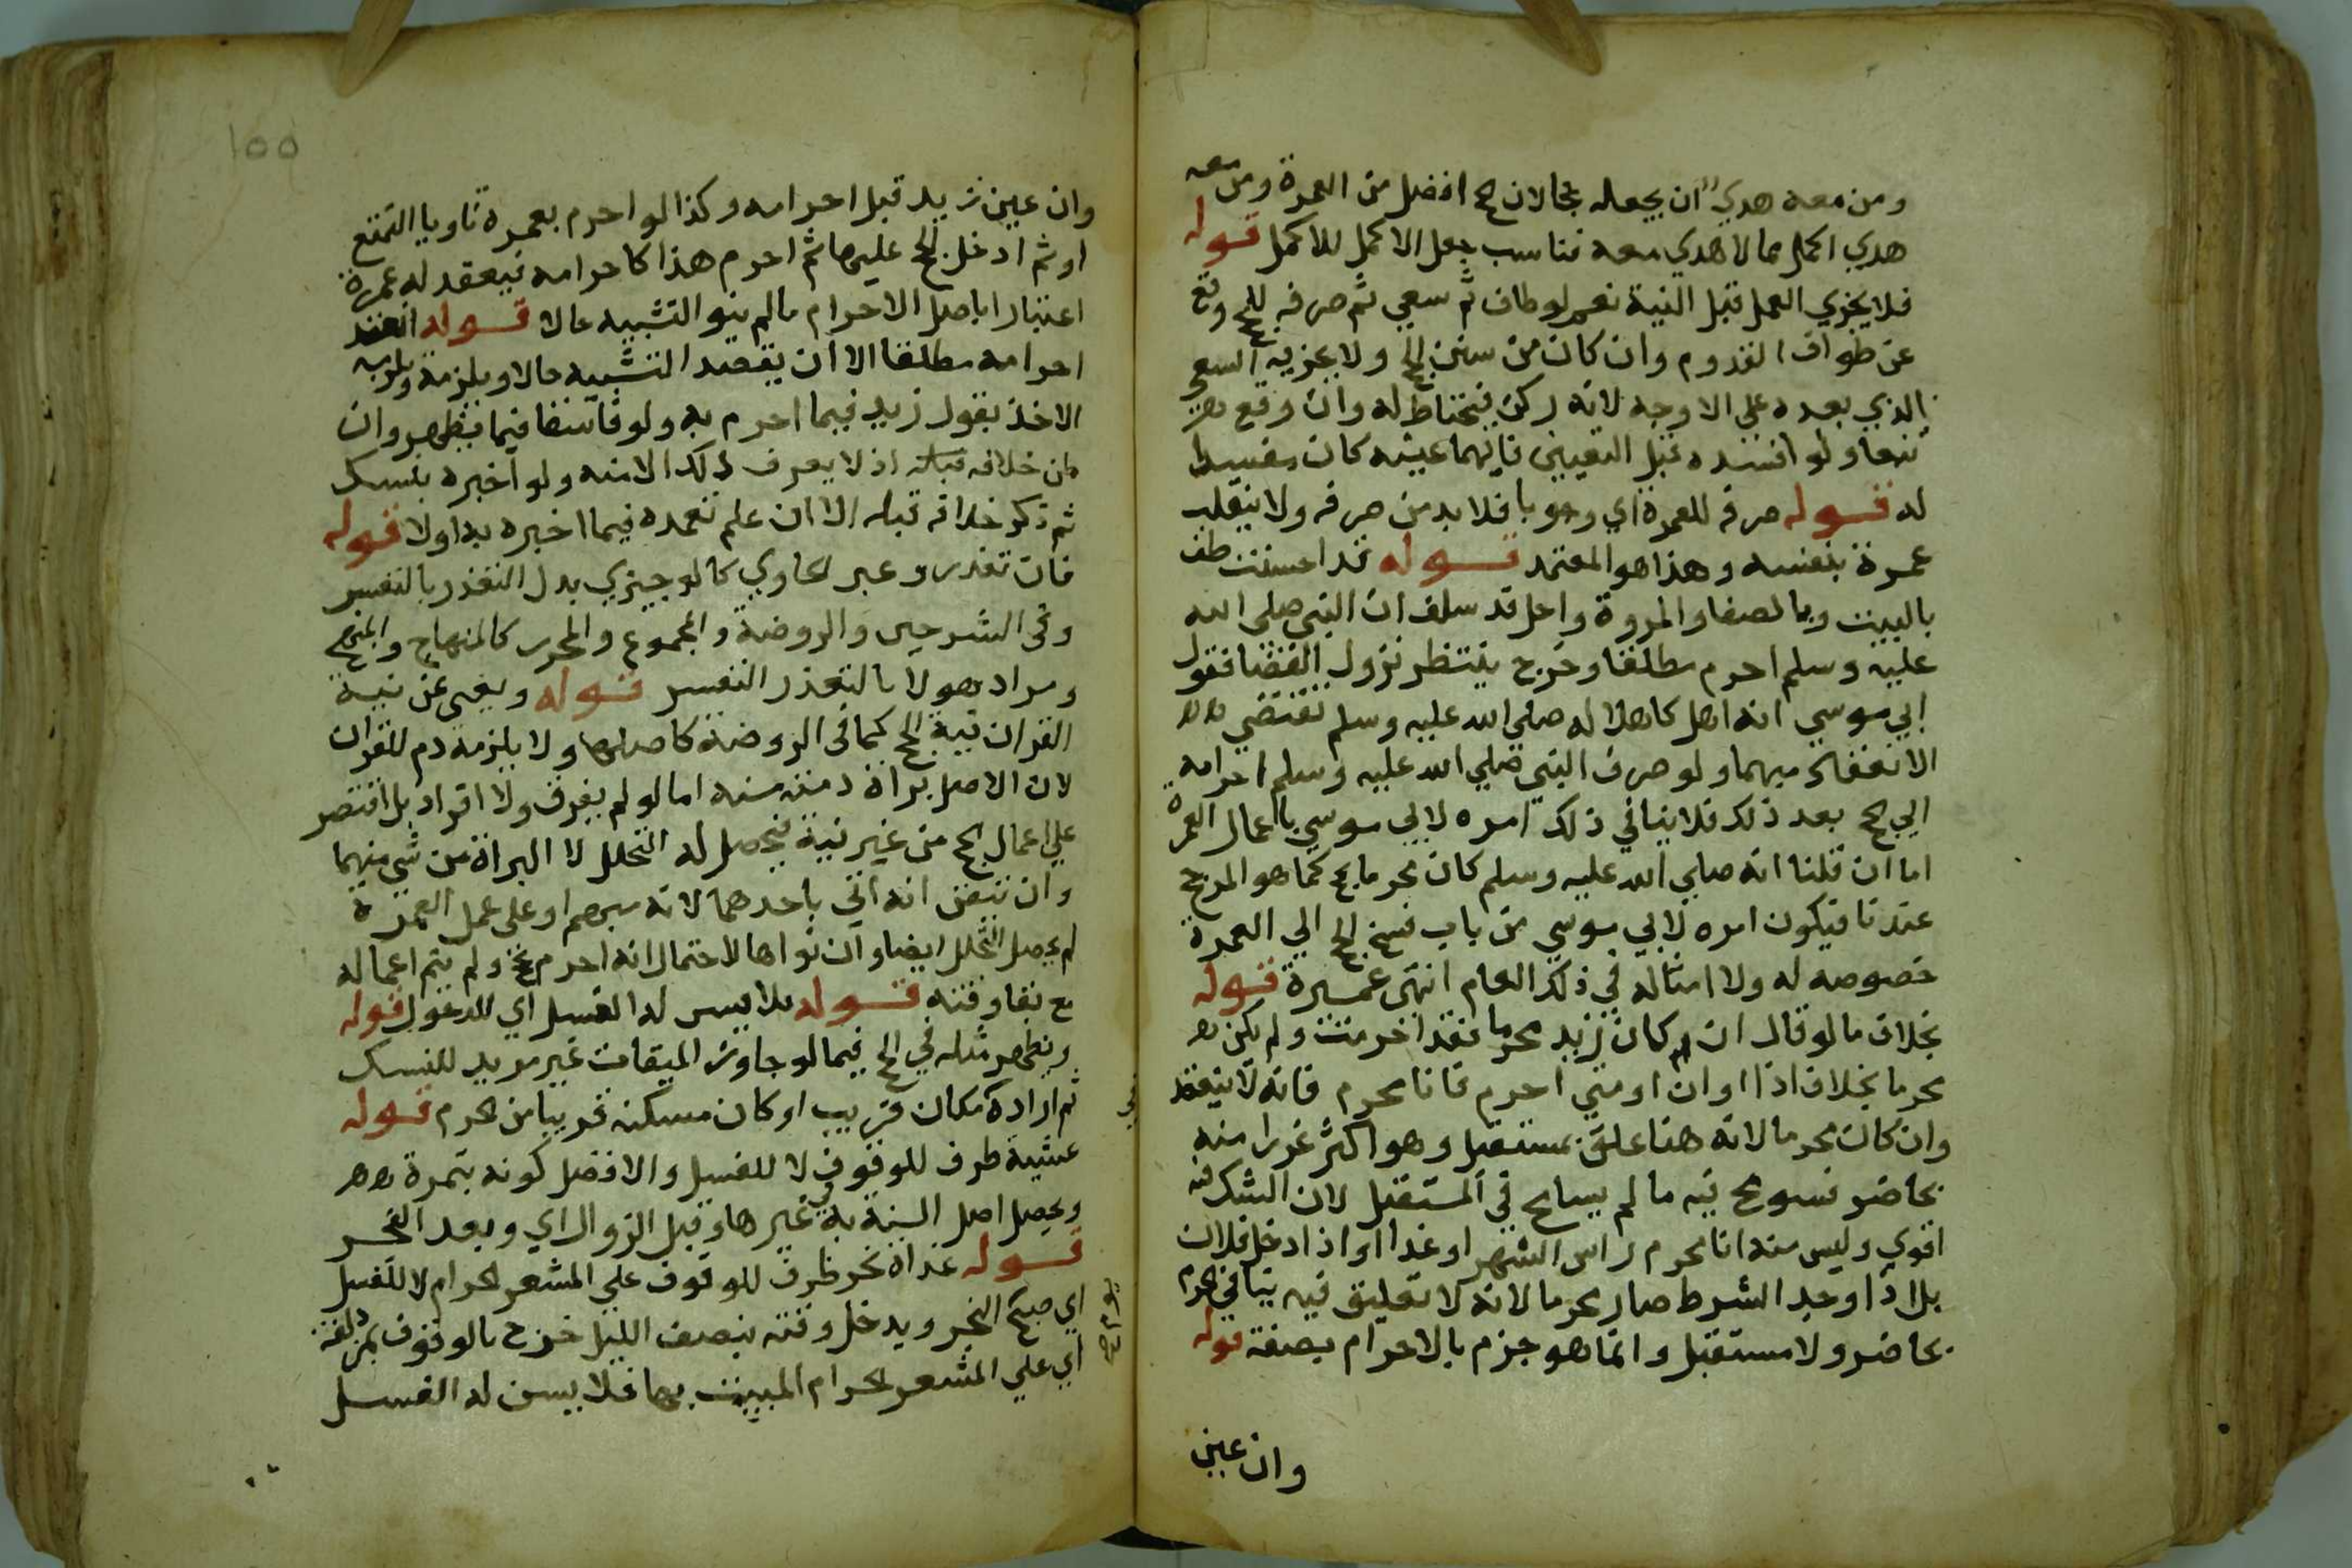 ومن معه هدي ان يجعله بحج لان الحج افضل من العمرة ومن معه
هدي اكمل مما لا هدي معه فناسب جعل الاكمل للاكمل قوله
فلا يجزي العمل قبل النية نعم لو طاف ثم سعي ثم صرفه للحج وقع
عن طواف القدوم وان كان من سنن الحج ولا يجزيه السعي
الذي بعده علي الاوجه لانه ركن فيحتاط له وان وقع
تبعا ولو افسده قبل التعيين فايهما عينه كان مفسدا
له قوله صرفه للعمرة اي وجوبا فلا بد من صرفه ولا ينقلب
عمرة بنفسه وهذا هو المعتمد قوله قد احسنت طف
بالبيت وبالصفا والمروة واحل قد سلف ان النبي صلي الله
عليه وسلم احرم مطلقا وخرج ينتظر نزول القضا فقول
ابي موسي انه اهل كاهلاله صلي الله عليه وسلم تقتضي
الانعقاد مبهما ولو صرف النبي صلي الله عليه وسلم احرامه
الي الحج بعد ذلك فلا ينافي ذلك امره لابي موسي باعمال العمرة
اما ان قلنا انه صلي الله عليه وسلم كان محرما بحج كما هو المرجح
عندنا فيكون امره لابي موسي من باب فسخ الحج الي العمرة
خصوصه له ولامثاله في ذلك العام انتهي عميرة قوله
بخلاف ما لو قال ان كان زيد محرما فقد احرمت ولم يكن
محرما بخلاف اذا او ان او متي احرم فانا محرم فانه لا ينعقد
وان كان محرما لانه هنا علق بمستقبل وهو اكثر غررا منه
بحاضر فسومح فيه ما لم يسامح في المستقبل لان الشك فيه
اقوي وليس منه انا محرم راس الشهر او غدا او اذا دخل فلان
بل اذا وجد الشرط صار محرما لانه لا تعليق فيه ينافي الجزم
بحاضر ولا مستقبل وانما هو جزم بالاحرام بصفة قوله
وان عين
١٥٥
وان عين زيد قبل احرامه وكذا لو احرم بعمرة ناويا التمتع
او ثم ادخل الحج عليها ثم احرم هذا كاحرامه فيعقد له عمرة
اعتبارا باصل الاحرام ما لم ينو التشبيه حالا قوله انعقد
احرامه مطلقا الا ان يقصد التشبيه حالا ويلزمه ويلزمه
الاخذ بقول زيد فيما احرم به ولو فاسقا فيما يظهر وان
ظن خلافه قبله اذ لا يعرف ذلك الا منه ولو اخبره بنسك
ثم ذكر خلافه قبله الا ان علم تعمده فيما اخبره به اولا قوله
فان تعذر وعبر الحاوي كالوجيز بدل التعذر بالتعسر
وفي الشرحين والروضة والمجموع والمحرر كالمنهاج والمنهج
ومراد هولا بالتعذر التعسر قوله ويغني عن نية
القران نية الحج كما في الروضة كاصلها ولا يلزمه دم للقران
لان الاصل براة ذمته منه اما لو لم يقرن ولا افرد بل اقتصر
علي اعمال الحج من غير نية فيحصل له التحلل لا البراة من شي منهما
وان تيقن انه اتي باحدهما لانه مبهم او علي عمل العمرة
لم يحصل التحلل ايضا وان نواها لاحتمال انه احرم بحج ولم يتم اعماله
مع بقا وقته قوله فلا يسن له الغسل اي للدخول قوله
ويظهر مثله في الحج فيما لو جاوز الميقات غير مريد للنسك
ثم اراده مكان قريب او كان مسكنه قريبا من الحرم قوله
عشية ظرف للوقوف لا للغسل والافضل كونه بنمرة
ويحصل اصل السنة به في غيرها وقبل الزوال اي وبعد الفجر
قوله غداة نحر ظرف للوقوف علي المشعر الحرام لا للغسل
اي صبح النحر ويدخل وقته بنصف الليل خرج بالوقوف بمزدلفة
اي علي المشعر الحرام المبيت بها فلا يسن له الغسل